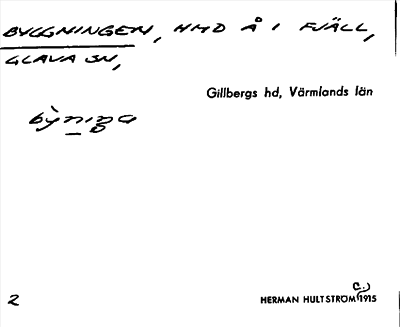 BYGGNINGEN, HMD Å I FJÄLL,
GLAVA SN,
Gillbergs hd, Värmlands län
bỳnıŋa
2
HERMAN HULTSTRÖM (C.) 1915